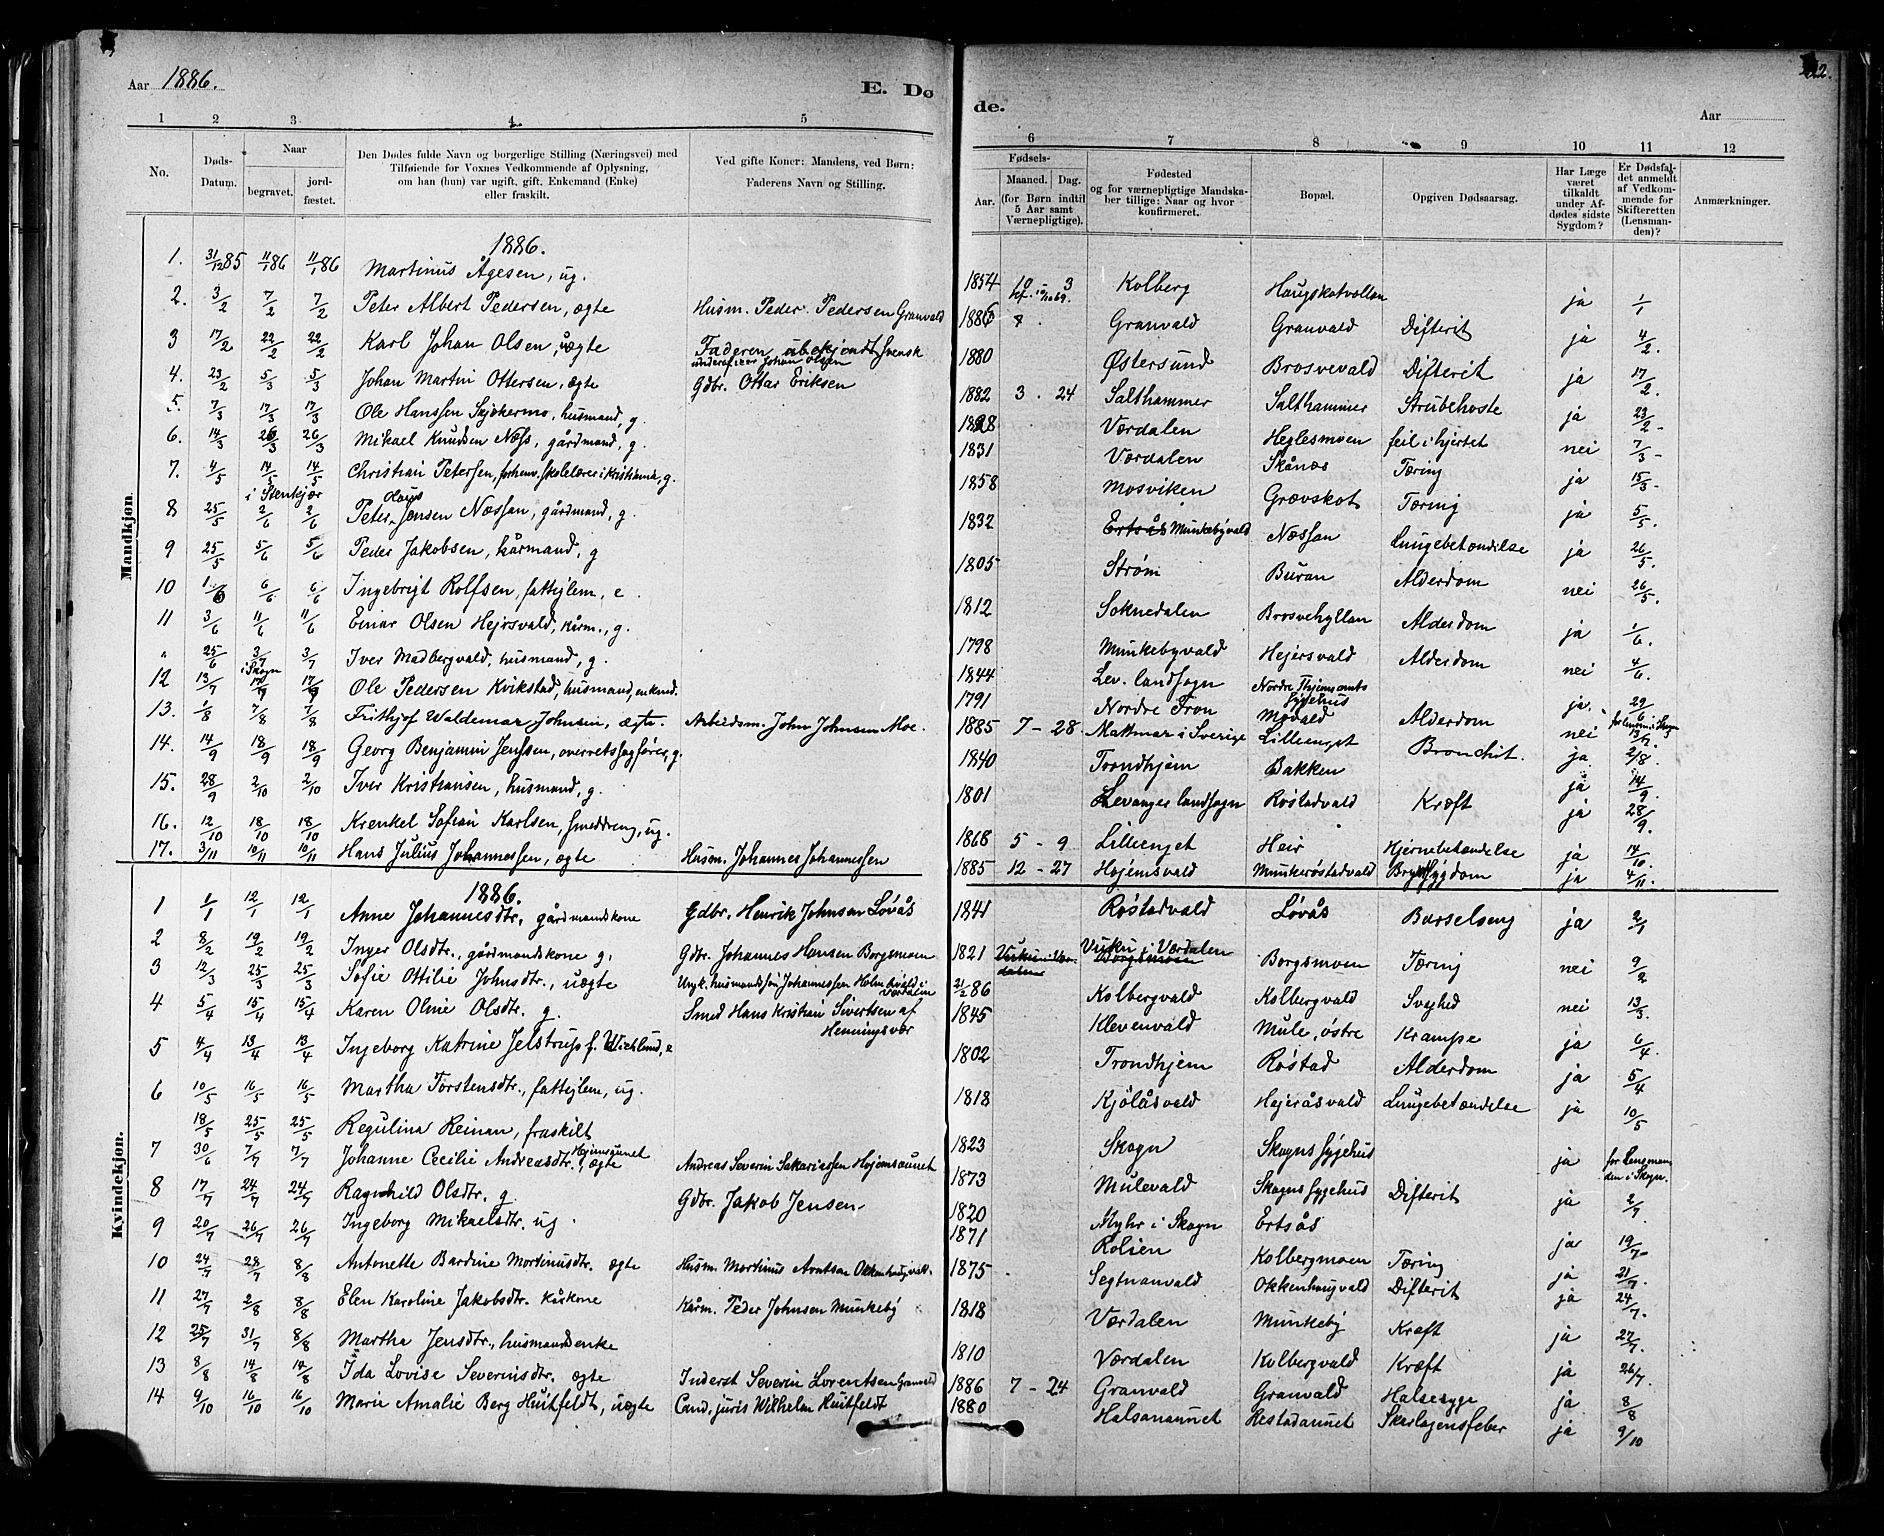 Aar 1886.
E. Dø
de.
Aar
1 2 3 4 5 6 7 8 9 10 11 12
No.
Døds-Datum.
Naar
begravet.
jord-fæstet.
Den Dødes fulde Navn og borgerlige Stilling (Næringsvei) med
Tilføiende for Voxnes Vedkommende af Oplysning,
om han (hun) var ugift, gift, Enkemand (Enke)
eller fraskilt.
Ved gifte Koner: Mandens, ved Børn:
Faderens Navn og Stilling.
Fødsels-
Aar.
Maaned. Dag.
(for Børn indtil
5 Aar samt
Værnepligtige).
Fødested
og for værnepligtige Mandska-
ber tillige: Naar og hvor
konfirmeret.
Bopæl.
Opgiven Dødsaarsag.
Har Læge
været
tilkaldt
under Af-
dødes sidste
Sygdom?
Er Dødsfal-
det anmeldt
af Vedkom-
mende for
Skifteretten
(Lensman-
den)?
Anmærkninger.
Mandkjøn.
1886.
1. 31/12 85 11/1 86 11/1 86 Martinus Ågesen, ug. 1854 10 3 Kolberg Haugskotvollan ja 1/1
2. 3/2 7/2 7/2 Peter Albert Pedersen, ægte Husm. Peder Pedersen Granvald 1886 Granvald Granvald Difterit ja 4/2.
3 17/2 22/2 22/2 Karl Johan Olsen, uægte Faderen ubekjendt svensk 1880 Østersund Brosvevald Difterit ja 17/2.
4. 23/2 5/3 5/3 Johan Martin Ottersen, ægte Gdbr. Ottar Eriksen 1882 3. 24 Salthammer Salthammer Strubehoste ja 23/2
5. 7/3 17/3 17/3 Ole Hanssen Sjøkermo, husmand, g. 1828 Værdalen Heglesmoen feil i hjertet nei 7/3
6. 14/3 26/3 26/3 Mikael Knudsen Næss, gårdmand, g. 1831 Værdalen Skånes Tæring ja 15/3
7. 4/5 14/5 14/5 Christian Petersen, forhenv. skolelærer i Kristiania, g. 1858 Mosviken Grævskot Tæring ja 5/5.
i Stenkjær
8 25/5 2/6 2/6 Peter Jensen Næssan, gårdmand, g. 1832 Ertsås Munkebyvald Næssan Lungebetændelse ja 26/5.
9 25/5 5/6 5/6 Peder Jakobsen, kårmand, g 1805 Strøm Buran Alderdom nei 26/5.
10 1/6 6/6 6/6 Ingebrigt Rolfsen, fattiglem, e. 1812 Soknedalen Brosvehyllan Alderdom ja 1/6.
11 3/6 11/6 11/6 Einar Olsen Hejrsvald, kårm., g. 1798 Munkebyvald Hejersvald Alderdom nei 4/6
" 25/6 3/7 3/7 Iver Madbergvald, husmand, g. 1844 Lev. landsogn Nordre Thjems amts sygehus ja. 29/6
i Skogn
12 13/7 17/7 17/7 Ole Pedersen Kvikstad, husmand, enkmd. 1791 Nordre Fron Movald Alderdom nei 13/7.
13. 1/8 7/8 7/8 Frithjof Waldemar Johnsen, ægte. Arbeidsm. John Johnsen Moe. 1885 7 - 28. Mattmar i Sverige Lilleenget Bronchit. ja 2/8.
14. 14/9 18/9 18/9 Georg Benjamin Jenssen, overretssagfører, g. 1840 Trondhjem Bakken ja 14/9.
15. 28/9 2/10 2/10 Iver Kristiansen, husmand, g. 1801 Levanger landsogn Røstadvald Kræft ja 28/9.
16. 12/10 18/10 18/10 Krenkel Sofian Karlsen, smeddreng, ug. 1868 5 - 9 Lilleenget Heir Hjernebetændelse ja 14/10.
17. 3/11 10/11 10/11 Hans Julius Johannessen, ægte Husm. Johannes Johannessen 1885 12 - 27 Hojemsvald Munkerøstadvald Brystsygdom ja 4/11.
Kvindekjøn.
1886.
1 1/1 12/1 12/1 Anne Johannesdtr., gårdmandskone Gdbr. Henrik Johnsen Løvås 1841 Røstadvald Løvås Barselseng ja 2/1
2 8/2 19/2 19/2 Inger Olsdtr., gårdmandskone g. Gdbr. Johannes Hansen Borgsmoen 1821 Vuku i Værdalen Borgsmoen Tæring nei 9/2
3 12/3 25/3 25/3 Sofie Ottilie Johnsdtr., uægte Ungk. husmandssøn Johannessen Holmkvald i Værdalen 21/2 86 Kolbergvald Kolbergvald Svaghed nei 13/3.
4 5/4 15/4 15/4 Karen Oline Olsdtr. g. Smed Hans Kristian Sivertsen af Henningsvær 1845 Klevenvald Mule, østre Krampe ja 6/4.
5 4/4 13/4 13/4 Ingeborg Katrine Jelstrup f. Wichlund, e 1802 Trondhjem Røstad Alderdom ja 5/4
6 10/5 16/5 16/5 Martha Torstensdtr., fattiglem, ug. 1818 Kjölåsvald Hejeråsvald Lungebetændelse ja 10/5
18/5 25/5 25/5 Regulina Reinan, fraskilt 1823 Skogn Skogns sygehus ja for Lensmanden i Skogn.
7 30/6 7/7 7/7 Johanne Cecilie Andreasdtr. Hojemsaunet, ægte Andreas Severin Sakariassen Hojemsaunet 1873 Mulevald Skogns sygehus Difterit ja 2/7.
8 17/7 24/7 24/7 Ragnhild Olsdtr. g. Gdbr. Jakob Jensen 1820 Myhr i Skogn Ertsås ja 19/7
9 20/7 26/7 26/7 Ingeborg Mikaelsdtr. ug. 1871 Rolien Kolbergmoen Tæring ja 21/7.
10 24/7 28/7 8/8 Antonette Bardine Mortinusdtr. ægte Husm. Mortinus Arntsen Okkenhaugvald. 1875 Segtnanvald Okkenhaugvald Difterit ja 24/7.
11 27/7 2/8 8/8 Elen Karoline Jakobsdtr. kårkone Kårm. Peder Johnsen Munkeby 1818 Værdalen Munkeby Kræft ja 27/7.
12 25/7 31/7 8/8 Martha Jensdtr., husmandsenke 1810 Værdalen Kolbergvald Kræft ja 26/7.
13 8/8 14/8 14/8 Ida Lovise Severinsdtr. ægte Inderst Severin Lorentsen Granvald 1886 7 - 24 Granvald Granvald Halsesyge ja 8/8
14 9/10 16/10 16/10 Marie Amalie Berg Huitfeldt, uægte Cand. juris Wilhelm Huitfeldt 1880 Halsanaunet Restadaunet Skarlagensfeber ja 9/10